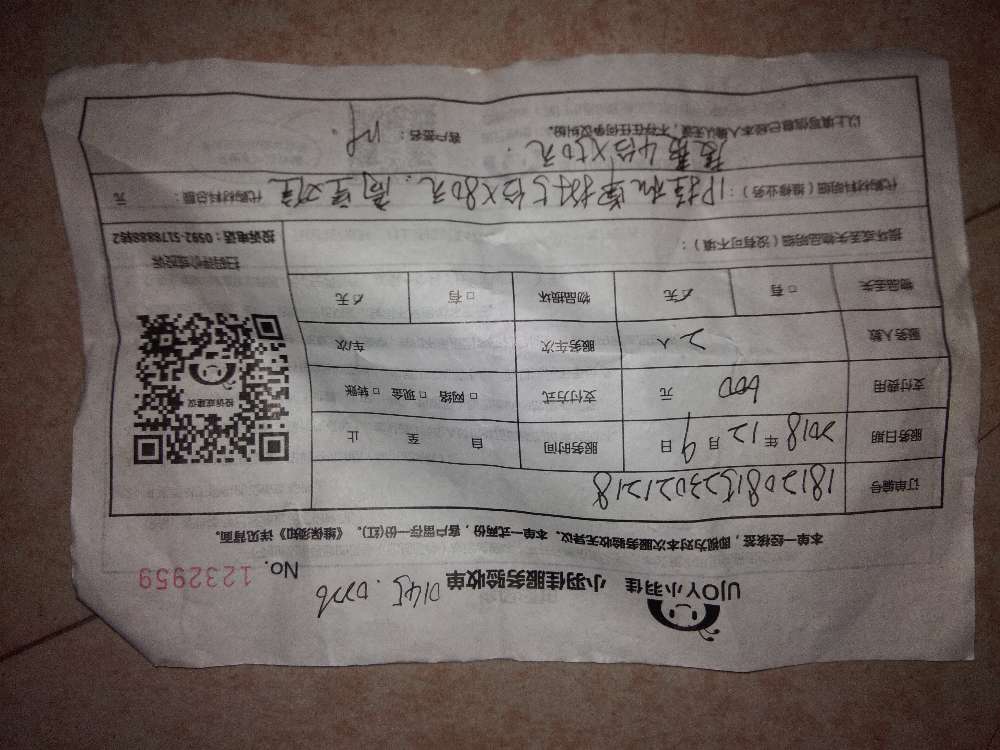 UJOY小羽佳 小羽佳服务验收单 No. 1232959
0145. 0776
本单一经核签，即视为对本次服务验收无异议。本单一式两份，客户留存一份(红)。《维保须知》详见背面。
订单编号 1812081523021218
服务日期 2018 年 12 月 9 日 服务时间 自 至 止
支付费用 600 元 支付方式 □ 网络 □ 现金 □ 转账
服务人数 2 人 服务车次 车次
投诉或建议
物品丢失 □ 有 ☑ 无 物品损坏 □ 有 ☑ 无
扫码评价或投诉
损坏或丢失物品明细（没有可不填）：
投诉电话：0592-5178888转2
代购材料明细（维修业务）： 1P挂机 5台×80元. 代购材料总额： 元
4台×50元.
以上填写信息已经本人确认无误，不存在任何争议纠纷。 客户签名：